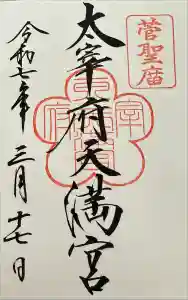 菅聖庿
太宰府天満宮
令和七年 三月 十七日